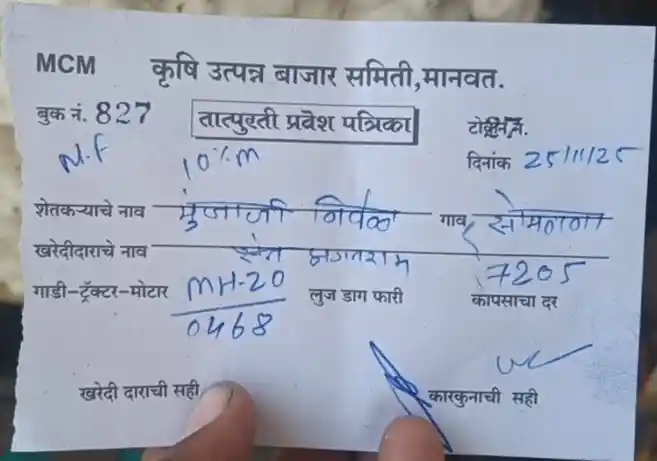 MCM कृषि उत्पन्न बाजार समिती, मानवत.
बुक नं. 827 तात्पुरती प्रवेश पत्रिका टोकन नं.
N.F 10%M दिनांक 25/11/25
शेतकऱ्याचे नाव मुंजाजी निर्वळ गाव सोमठाणा
खरेदीदाराचे नाव भगतराम
गाडी-ट्रॅक्टर-मोटार MH-20 लुज डाग फारी 7205 कापसाचा दर
0468
खरेदी दाराची सही कारकुनाची सही